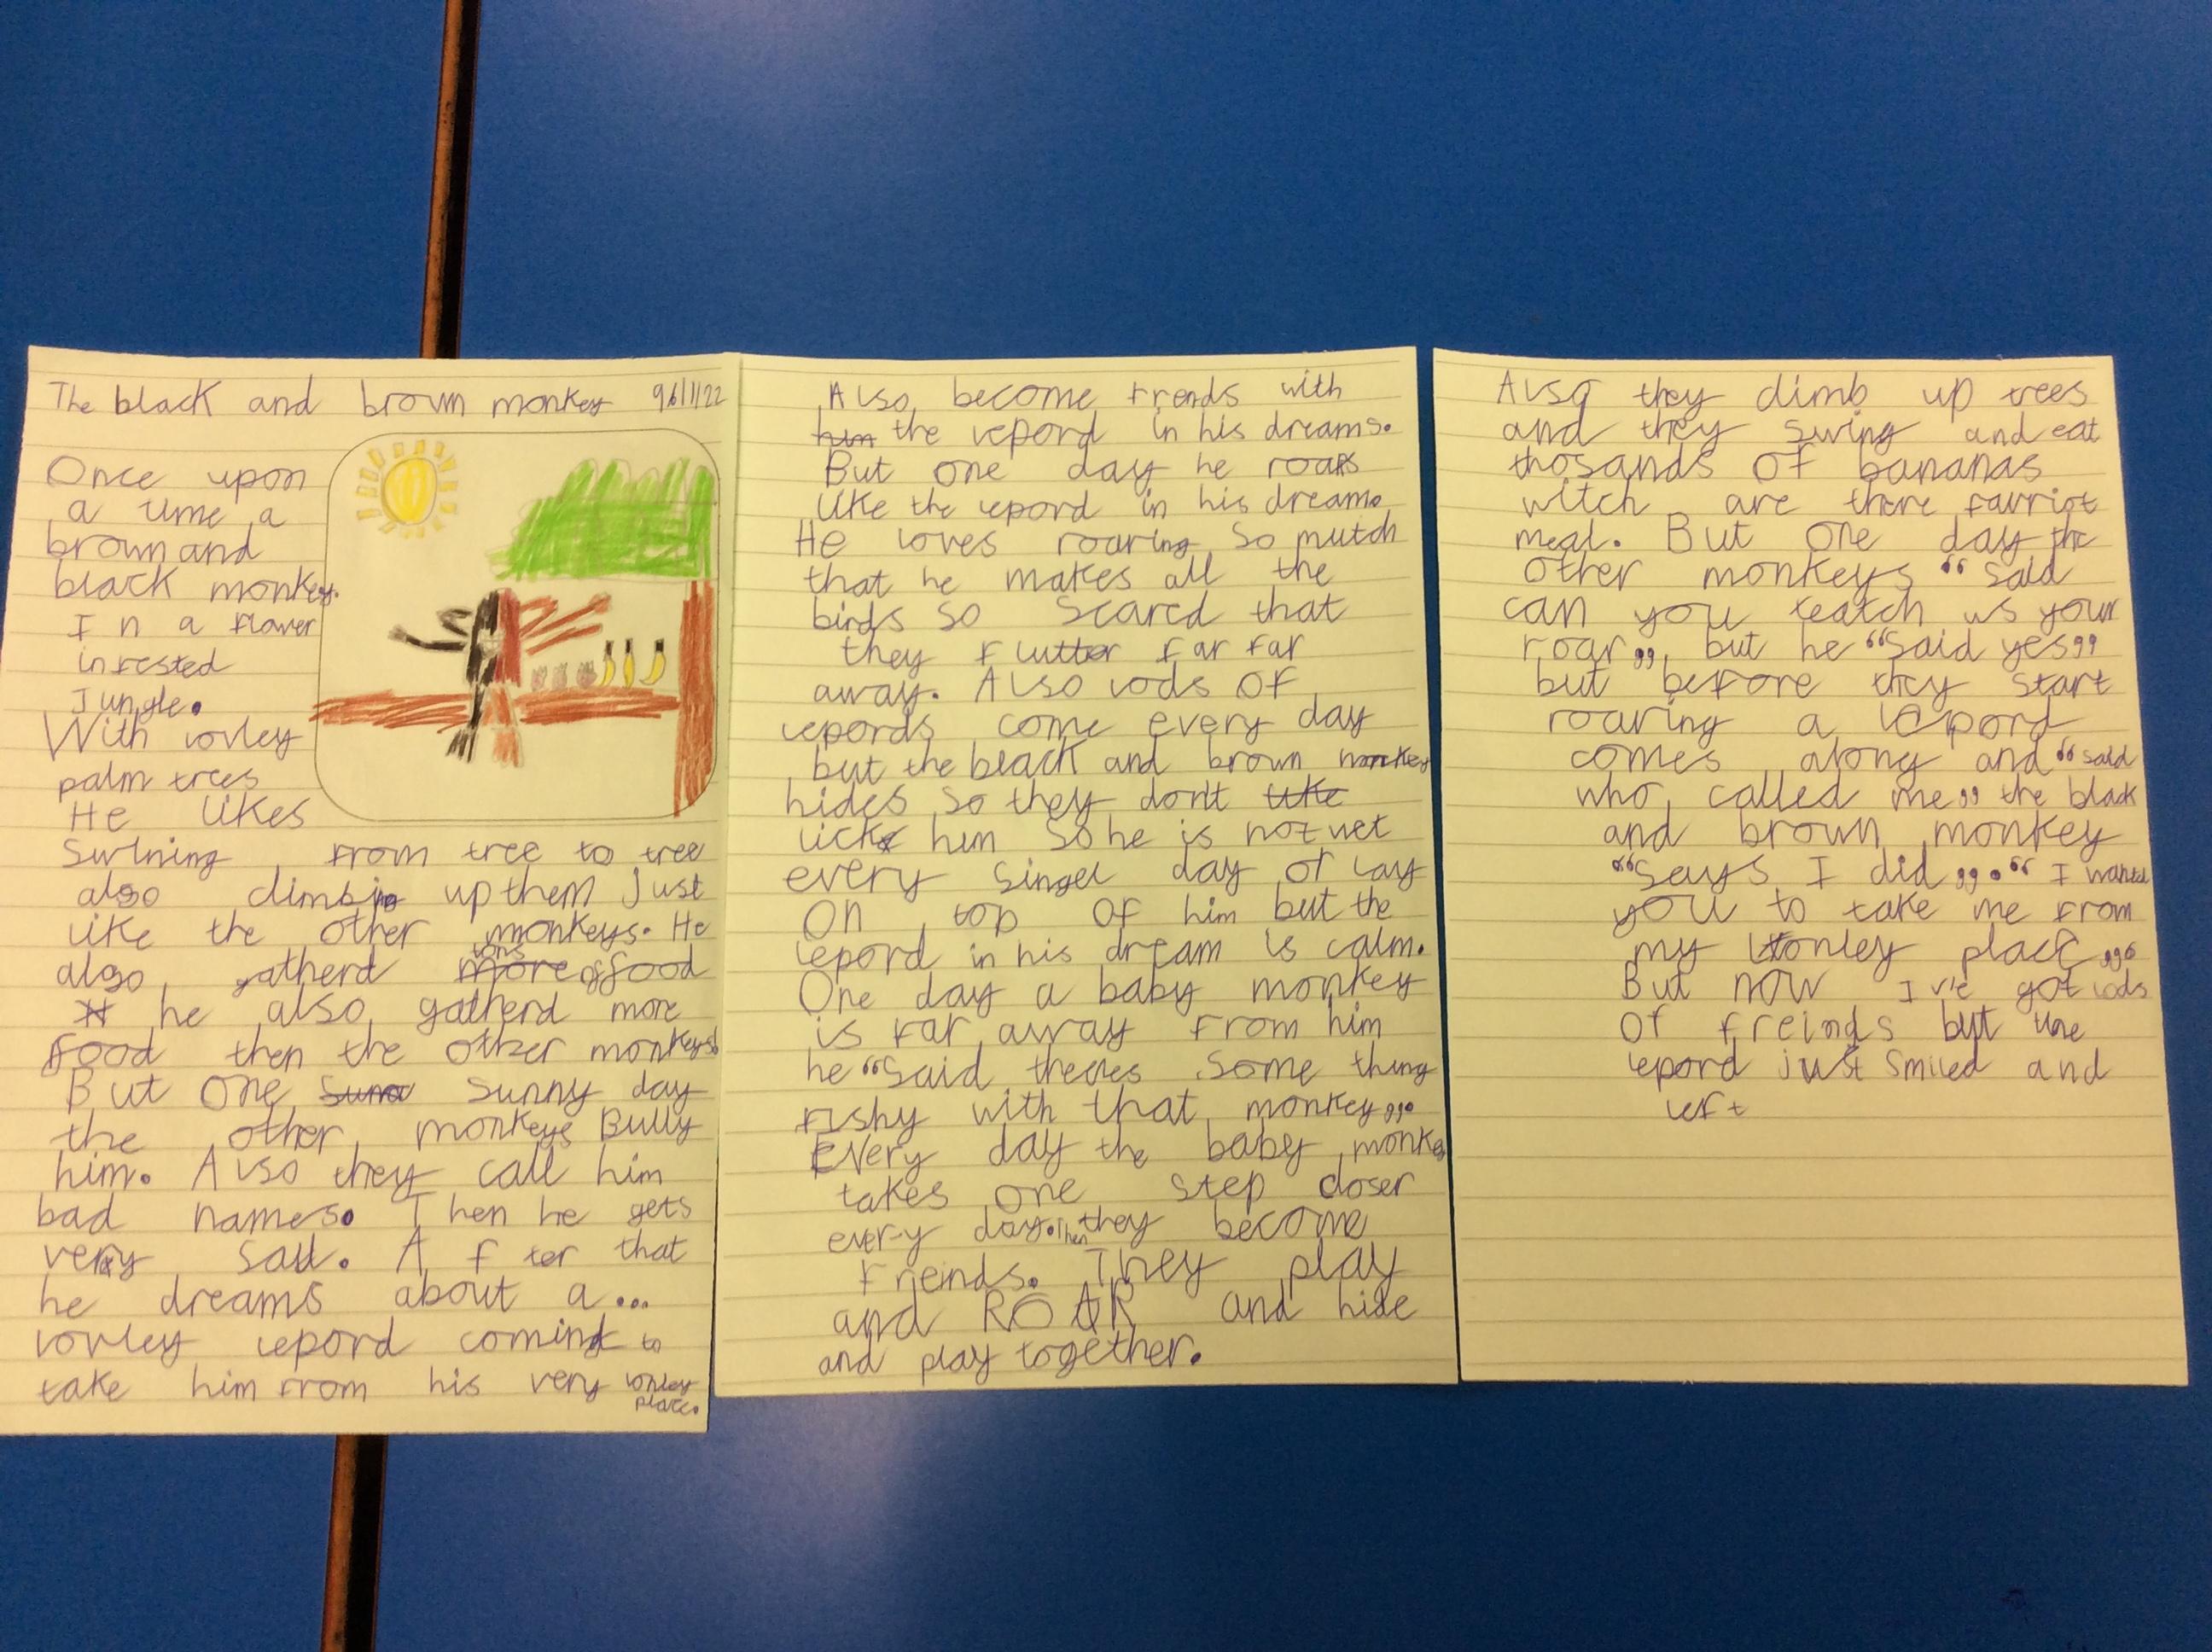 The black and brown monkey 96/11/22
Once upon
a time a
brown and
black monkey.
In a flower
infested
Jungle.
With lovley
palm trees
He likes
Swining from tree to tree
also climbing up them Just
like the other monkeys. He
also gatherd tons of food
he also gatherd more
food then the other monkeys!
But one sunny day
the other monkeys Bully
him. Also they call him
bad names. Then he gets
very sad. After that
he dreams about a...
lovley lepord coming to
take him from his very lonley
place.
Also become frends with
the lepord in his dreams.
But one day he roars
like the lepord in his dreams
He loves roaring so mutch
that he makes all the
birds so scared that
they flutter far far
away. Also lods of
lepords come every day
but the black and brown monkey
hides so they don't
lick him so he is not wet
every singel day or lay
on top of him but the
lepord in his dream is calm.
One day a baby monkey
is far away from him
he “said theres some thing
fishy with that monkey”.
Every day the baby monkey
takes one step closer
every day. Then they become
Freinds. They play
and ROAR and hide
and play together.
Also they climb up trees
and they swing and eat
thosands of bananas
witch are there favriot
meal. But one day the
other monkeys “said
can you teatch us your
roar”, but he “said yes”
but before they start
roaring a lepord
comes along and “said
who called me” the black
and brown monkey
“says I did”.“ I wanted
you to take me from
my lonley place”.
But now I've got lods
of freinds but the
lepord just smiled and
left